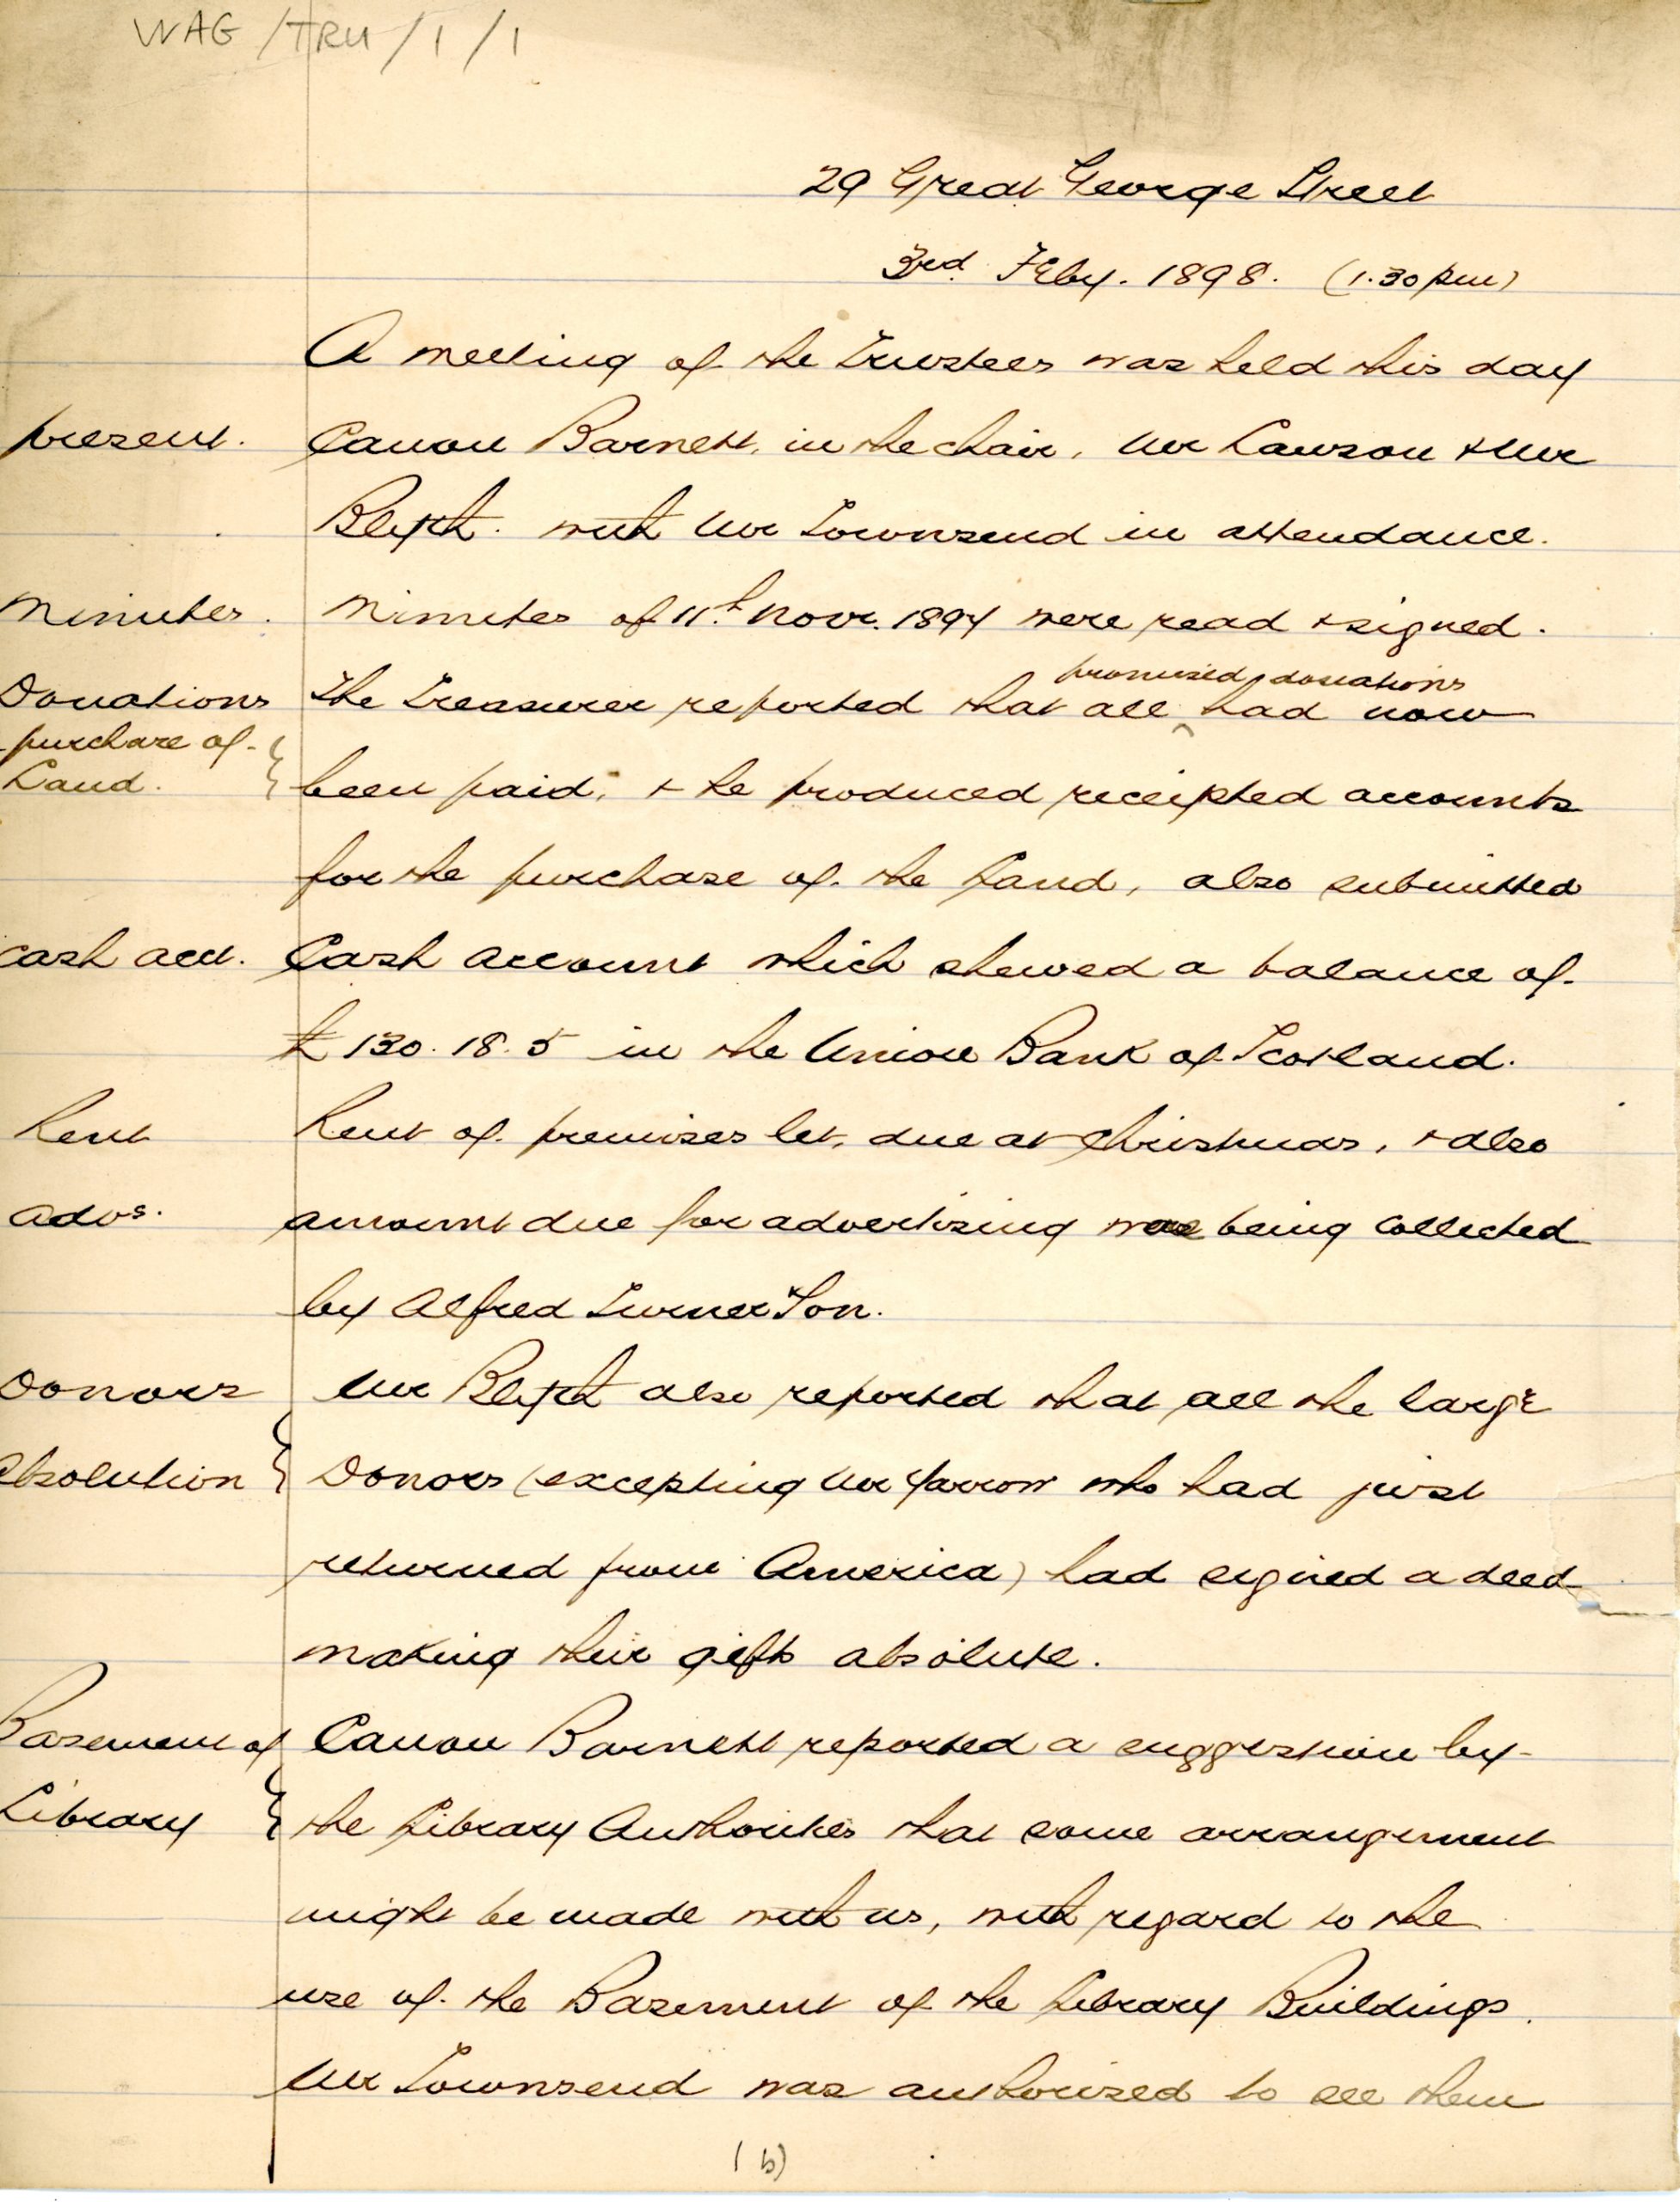 WAG/TRU/1/1
29 Great George Street
3rd Feby. 1898. (1.30 pm)
A meeting of the Trustees was held this day
present. Canon Barnett, in the chair, Mr Lawson & Mr
Blyth. with Mr Townsend in attendance.
Minutes. Minutes of 11th Novr. 1897 were read & signed.
promised donations
Donations The Treasurer reported that all had now
purchase of
Land. been paid, & he produced receipted accounts
for the purchase of the Land, also submitted
Cash acct. Cash account which shewed a balance of
£130.18.5 in the Union Bank of Scotland.
Rent Rent of premises let, due at Christmas, & also
advs. amount due for advertizing were being collected
by Alfred Turner Son.
Donors Mr Blyth also reported that all the large
Absolution Donors (excepting Mr Yarrow who had just
returned from America) had signed a deed
making their gifts absolute.
Basement of Canon Barnett reported a suggestion by
Library the Library Authorities that some arrangement
might be made with us, with regard to the
use of the Basement of the Library Buildings.
Mr Townsend was authorized to see them